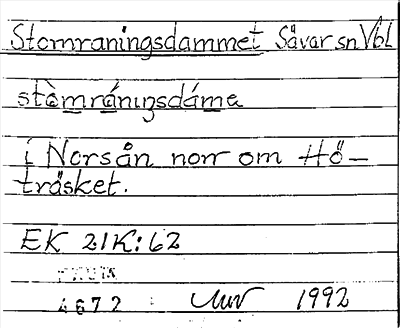 Stomraningsdammet Sävar sn Vbl
stòmrániŋsdáme
i Norsån norr om Hö-
träsket.
EK 21K:62
4672 1992